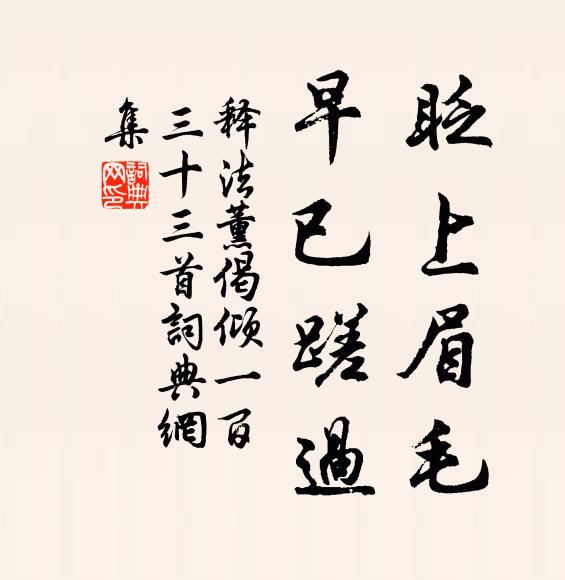 眨上眉毛
早已蹉過
释法薰偈倾一百
三十三首詞典網
集
詞典网印